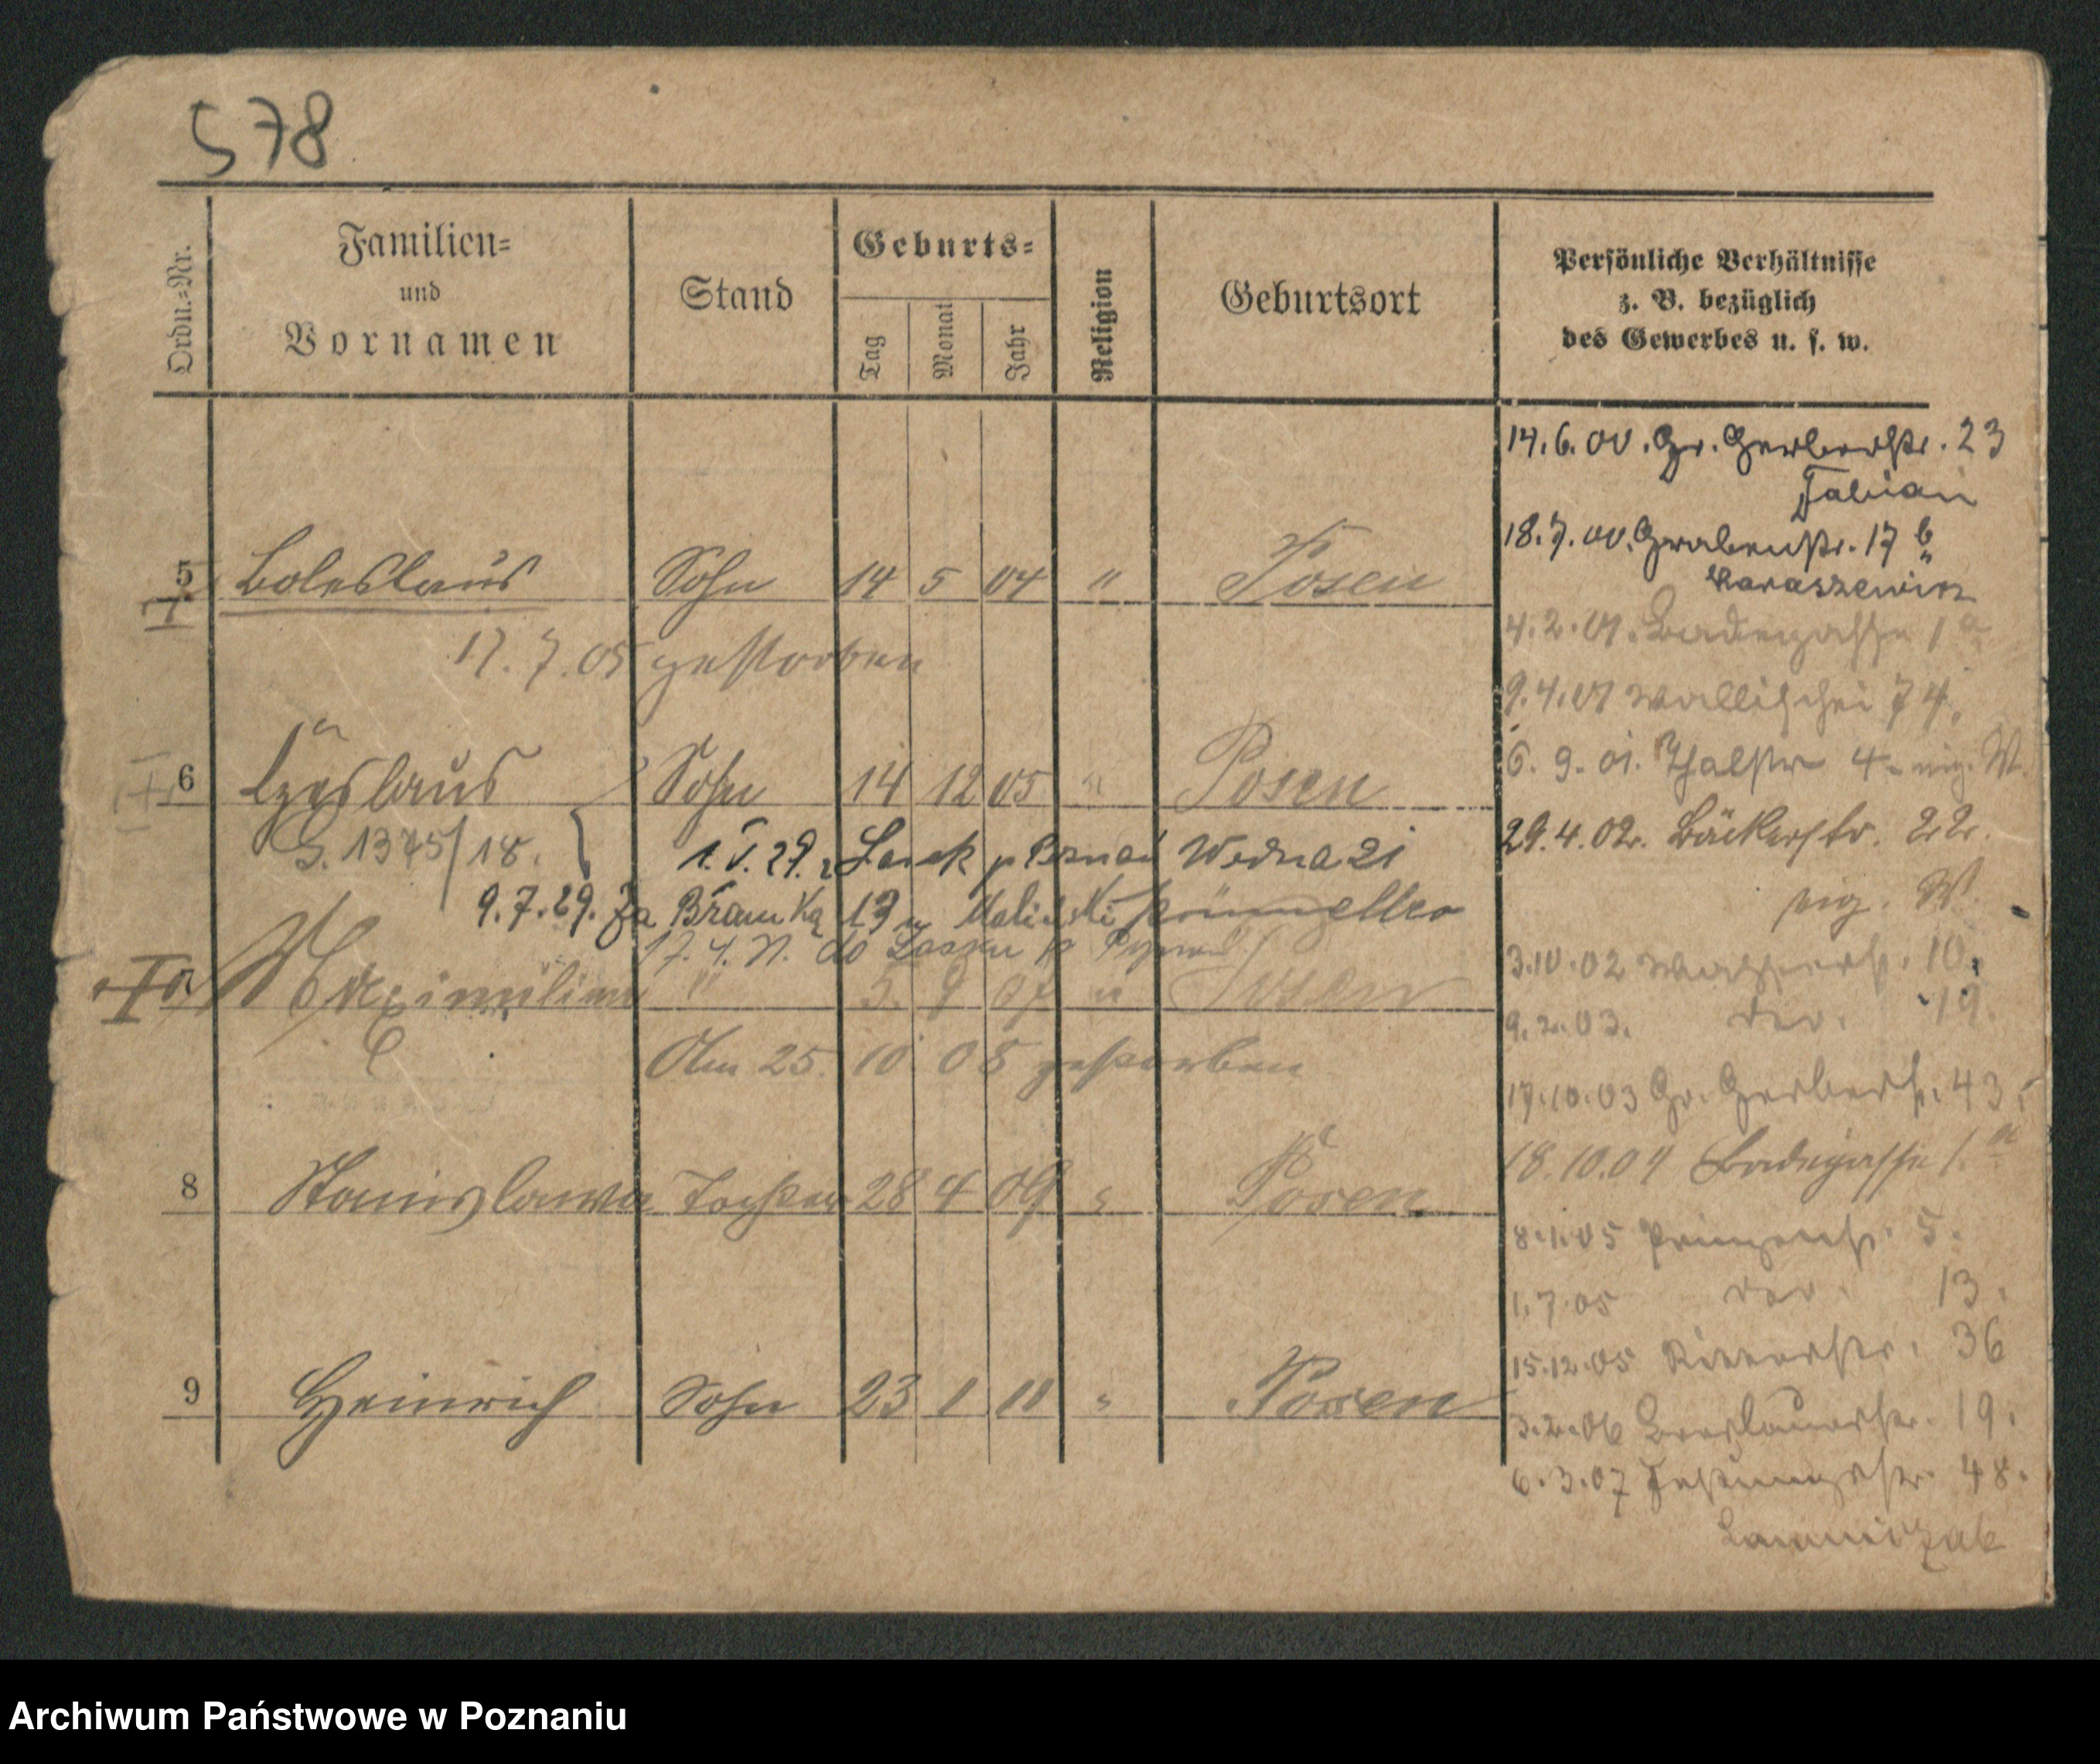 578
Ordn.=Nr.
Familien=
und
Vornamen
Stand
Geburts=
Tag
Monat
Jahr
Religion
Geburtsort
Persönliche Verhältnisse
z. B. bezüglich
des Gewerbes u. s. w.
14.6.00. Gr. Gerberstr. 23
Fabian
18.7.00. Grabenstr. 17 b
5 Boleslaus Sohn 14 5 04 " Posen
4.2.01. Badegasse 1 a
17.7.05 gestorben
9.4.01 Wallischei 74.
6.9.01. Thalstr 4 eig. W.
6 Czeslaus Sohn 14 12 05 " Posen
29.4.02. Bäckerstr. 22.
eig. W.
G. 1375/18.
1. V. 29. Lasek p Poznań
9.7.29. Za Bramką 13
3.10.02 Wasserstr. 10.
Maximilian " 5. 9 07 " Posen
9.2.03. 19.
Am 25. 10 08 gestorben
17.10.03 Gr. Gerberstr. 43.
18.10.04 Badegasse 1. a
8 Stanislawa Tochter 28 4 09 " Posen
8.1.05 Prinzenstr. 5.
1.7.05 13.
15.12.05 Ritterstr. 36
9 Heinrich Sohn 23 1 11 " Posen
3.2.06 Breslauerstr. 19.
6.3.07 Festungsstr. 48.
Archiwum Państwowe w Poznaniu